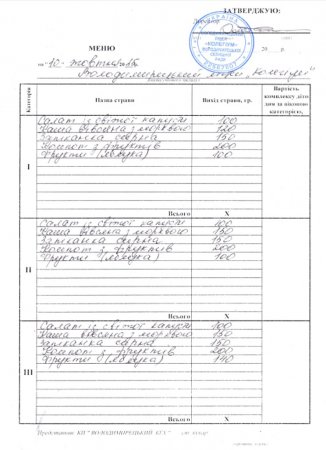 ЗАТВЕРДЖУЮ:
УКРАЇНА
МЕНЮ
на "10" жовтня
Категорія
Назва страви
Вихід страви, гр.
Вартість комплексу дітодня за віковою категорією,
I
Салат із свіжої капусти 100
Каша вівсяна з морквою 120
Запіканка сирна 150
Компот з фруктів 200
Фрукти (яблука) 100
Всього X
II
Салат із свіжої капусти 100
Каша вівсяна з морквою 150
Запіканка сирна 150
Компот з фруктів 200
Фрукти (яблука) 100
Всього X
III
Салат із свіжої капусти 100
Каша вівсяна з морквою 150
Запіканка сирна 150
Компот з фруктів 200
Фрукти (яблука) 140
Всього X
Представник КП "ВОЛОДИМИРЕЦЬКИЙ